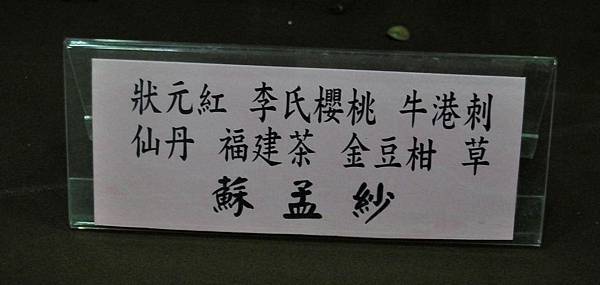 狀元紅 李氏櫻桃 牛港刺
仙丹 福建茶 金豆柑 草
蘇孟紗